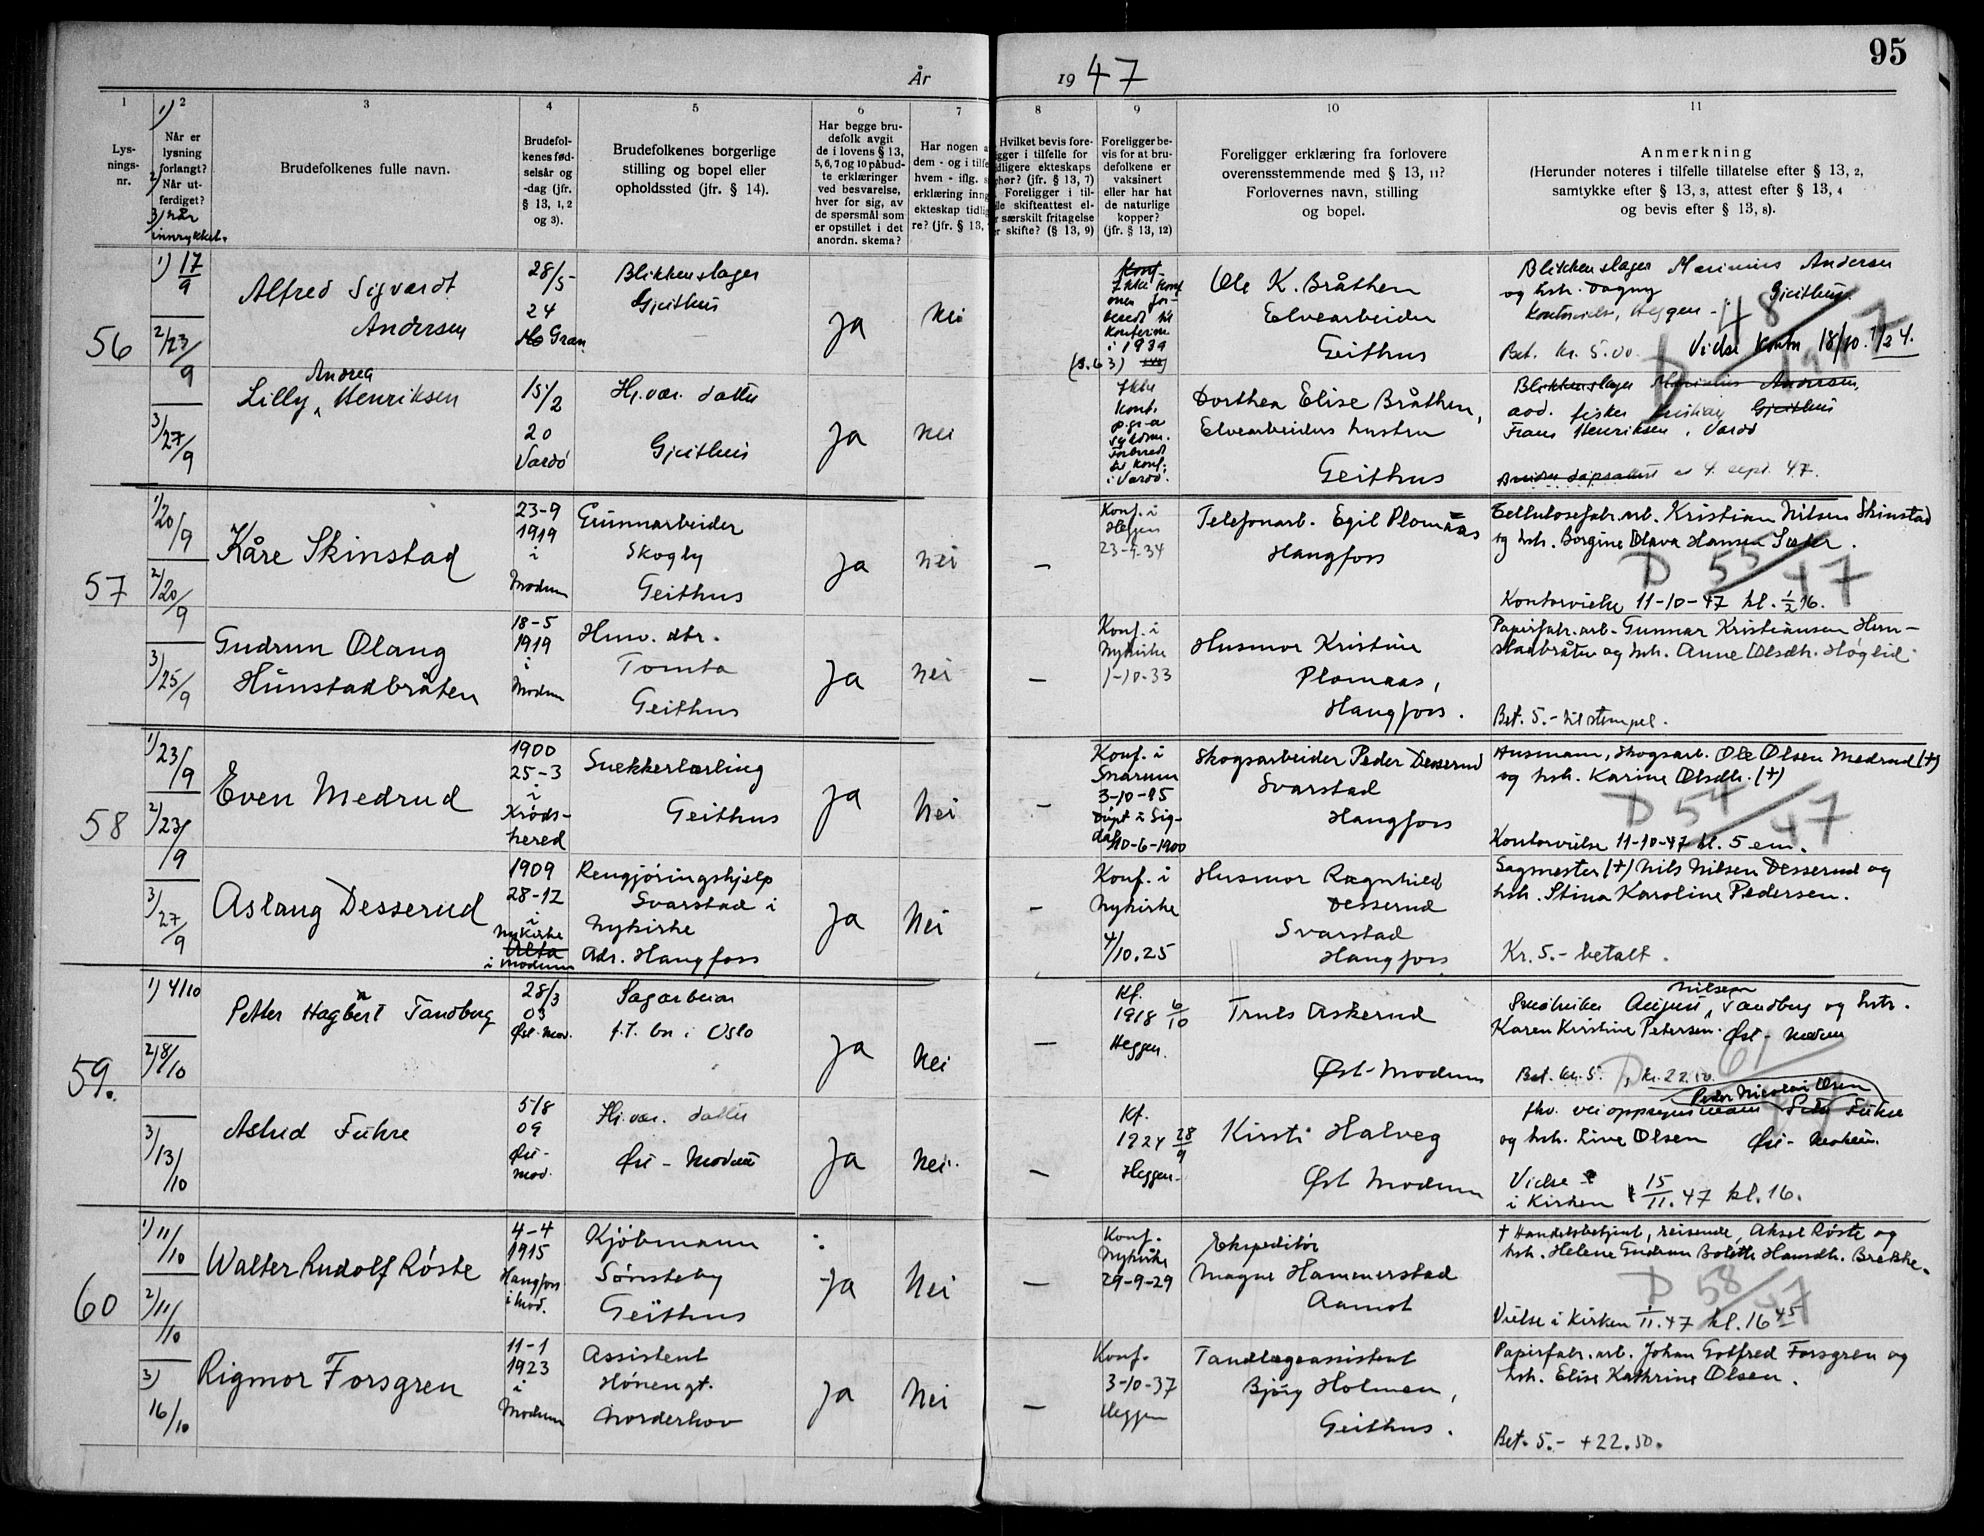 95
År 1947
1
Lys-
nings-
nr.
1) 2
Når er
lysning
forlangt?
2) Når ut-
ferdiget?
3) når
innrykket.
3
Brudefolkenes fulle navn.
4
Brudefol-
kenes fød-
selsår og
-dag (jfr.
§ 13, 1, 2
og 3).
5
Brudefolkenes borgerlige
stilling og bopel eller
opholdssted (jfr. § 14).
6
Har begge bru-
defolk avgit
de i lovens § 13,
5, 6, 7 og 10 påbud-
te erklæringer
ved besvarelse,
hver for sig, av
de spørsmål som
er opstillet i det
anordn. skema?
7
Har nogen a
dem - og i tilfe
hvem - iflg. s
erklæring inng
ekteskap tidlig
re? (jfr. § 13,
8
Hvilket bevis fore-
igger i tilfelle for
idligere ekteskaps
phør? (jfr. § 13, 7)
Foreligger i til-
lle skifteattest el-
r særskilt fritagelse
r skifte? (§ 13, 9)
9
Foreligger be-
vis for at bru-
defolkene er
vaksinert
eller har hat
de naturlige
kopper?
(jfr. § 13, 12)
10
Foreligger erklæring fra forlovere
overensstemmende med § 13, 11?
Forlovernes navn, stilling
og bopel.
11
Anmerkning
(Herunder noteres i tilfelle tillatelse efter § 13, 2,
samtykke efter § 13, 3, attest efter § 13, 4
og bevis efter § 13, 8).
56
1) 17/9
2/23/9
3/27/9
Alfred Sigvardt
Andersen
28/5-
24
Gran
Blikkenslager
Gjeithus
Ja
Nei
Konf.
Ikke konf
men for-
beredt til
konferm
i 1939
(s. 63)
Ole K. Bråthen
Elvearbeider
Geithus
Blikkenslager Marinius Andersen
og hstr. Dagny Gjeithus
Bet. kr. 5.00. Vielse Kontor 18/10. 1/2 4.
Lilly Andrea Henriksen
15/2
20
Vardö
Hj. vær. datter
Gjeithus
Ja
Nei
Ikke
konf.
p. gr. a
sykdom.
Forberedt
til konf.
i Vardö.
Dorthea Elise Bråthen,
Elvearbeiders hustru
Geithus
Blikkenslager Marinius Andersen,
avd. fisker Kristian Gjeithus
Frans Henriksen, Vardö
4. sept. 47.
57
1/20/9
2/20/9
3/25/9
Kåre Skinstad
23-9
1919
i
Modum
Grunnarbeider
Skogly
Geithus
Ja
Nei
—
Konf. i
Heggen
23-9-34
Telefonarb. Egil Plomaas
Haugfoss
Cellulosefabr. arb. Kristian Nilsen Skinstad
og hstr. Borgine Olava Hansen Sæter.
D 55/47
Kontorvielse 11-10-47 kl. 1/2 16.
Gudrun Olaug
Hunstadbråten
18-5
1919
i
Modum
Husv. dtr.
Tomta
Geithus
Ja
Nei
—
Konf. i
Nykirke
1-10-33
Husmor Kristine
Plomaas,
Haugfoss.
Papirfabr. arb. Gunnar Kristiansen Hun-
stadbråten og hstr. Anne Olsdtr. Höglid
Bet. 5.- til stempel.
58
1/23/9
2/23/9
3/27/9
Even Medrud
1900
25-3
i
Kröds-
hered
Snekkerlærling
Geithus
Ja
Nei
—
Konf. i
Snarum
3-10-15
Döpt i Sig-
dal 10-6-1900
Skogsarbeider Peder Desserud
Svarstad
Haugfoss
Husmann, skogsarb. Ole Olsen Medrud (+)
og hstr. Karine Olsdtr. (+)
D 54/47
Kontorvielse 11-10-47 kl. 5 em.
Aslaug Desserud
1909
28-12
i
Nykirke
i Modum
Rengjöringshjelp
Svarstad i
Nykirke
Adr. Haugfoss
Ja
Nei
—
Konf. i
Nykirke
4/10.25
Husmor Ragnhild
Desserud
Svarstad
Haugfoss
Sagmester (+) Nils Nilsen Desserud og
hstr. Stina Karoline Pedersen.
Kr. 5.- betalt.
59.
1) 4/10
2) 8/10
3/13/10
Petter Hagbart Tandberg
28/3
03
Øst-Mod.
Sagarbeider
f.t. bor i Oslo
Ja
Nei
—
Kf.
1918 6/10
Heggen.
Truls Askerud
Øst-Modum
August Nilsen Tandberg og hstr.
Karen Kristine Petersen. Øst-Modum
D 61/47
Bet. kr. 5. kr. 22.50.
Astrid Fuhre
5/8
09
Øst-
Mod.
Hj. vær. datter
Øst-Modum
Ja
Nei.
—
Kf.
1924 28/9
Heggen.
Kirsti Halveg
Øst Modum
Peder Nicolai Olsen
fhv. veioppsynsmann Fuhre
og hstr. Live Olsen Øst-Modum.
Vielse
i Kirken 15/11.47 kl. 16.
60
1) 11/10
2) 11/10
3) 16/10
Walter Rudolf Röste
4-4
1915
Haugfoss
i Mod.
Kjöbmann
Sönsteby
Geithus
Ja
Nei
—
Konf.
Nykirke
29-9-29
Ekspeditör
Magne Hammerstad
Aamot
+ Handelsbetjent, reisende, Aksel Röste og
hstr. Helene Gudrun Bolette Hansdtr. Brekke.
D 58/47
Vielse i Kirken 1/11.47 kl. 16 45
Rigmor Forsgren
11-1
1923
i
Modum
Assistent
Hönengt.
Norderhov
Ja
Nei
—
Konf.
3-10-37
Heggen
Tandlægeassistent
Björg Holmen,
Geithus.
Papirfabr. arb. Johan Gotfred Forsgren og
hstr. Elise Kathrine Olsen.
Bet. 5.- + 22.50.